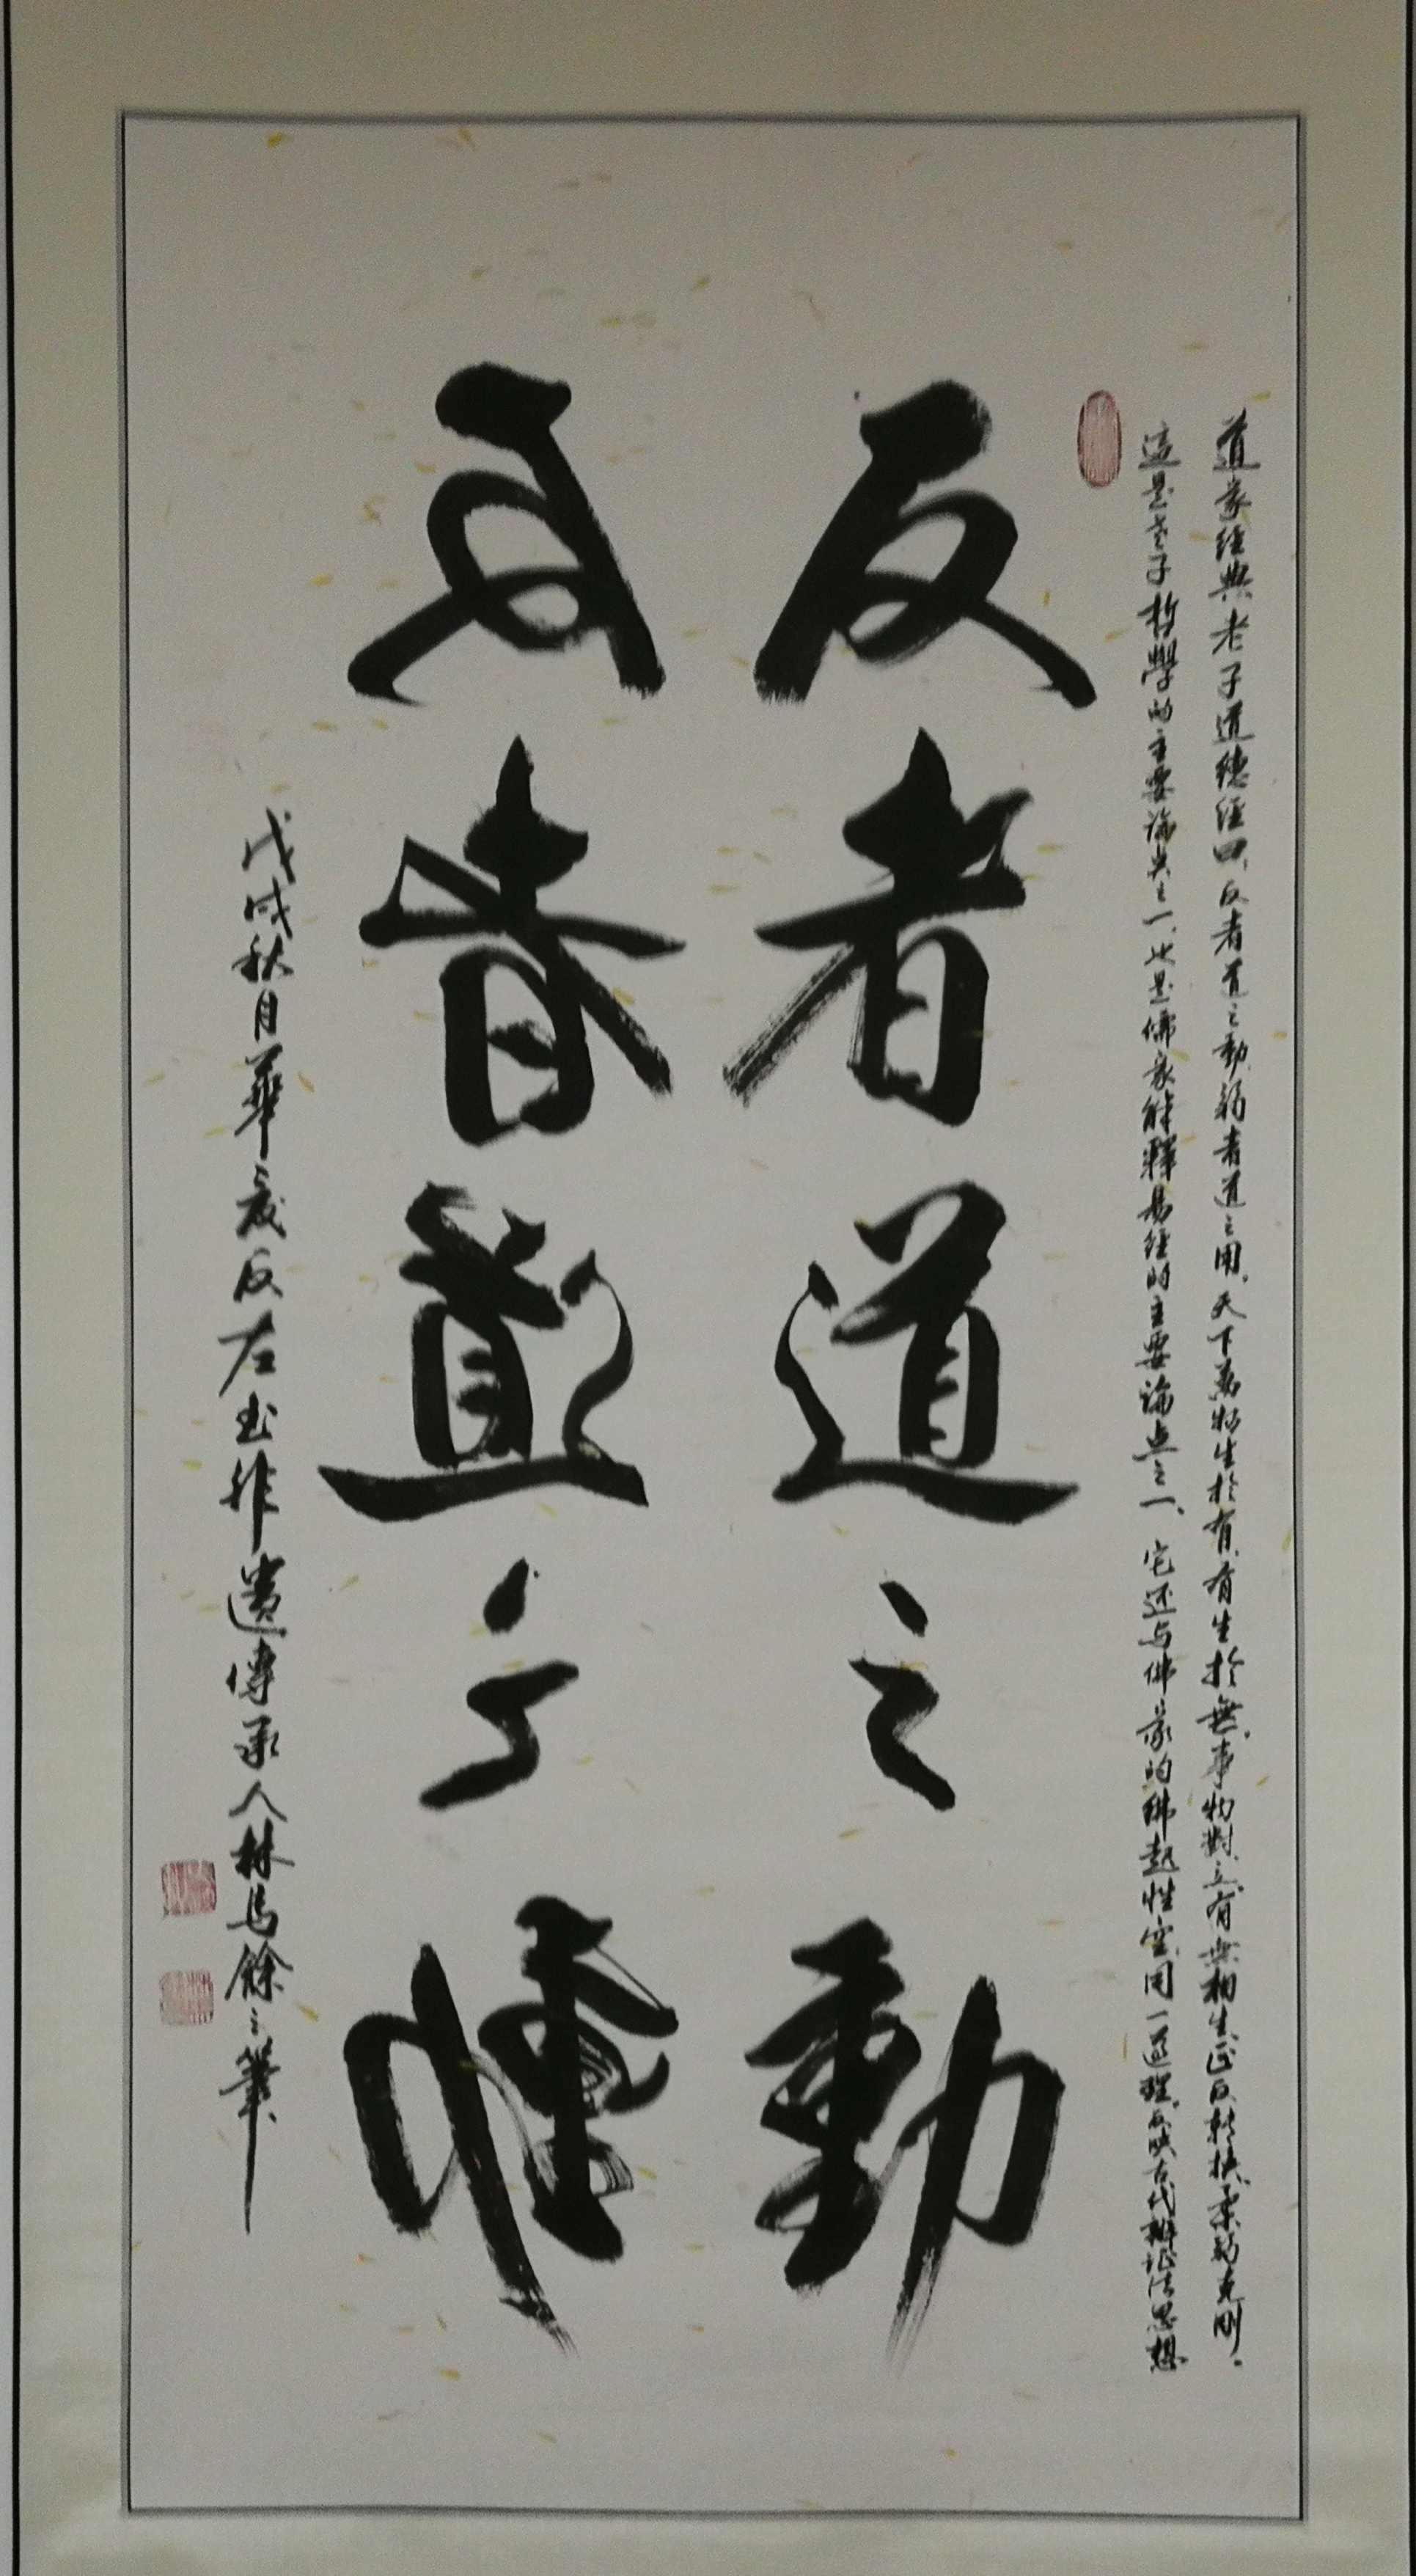 道家经典老子道德经曰、反者道之動、弱者道之用。天下萬物生於有、有生於無。事物對立、有無相生、正反转换、柔弱克刚。
這是老子哲學的主要論点之一、也是儒家解釋易经的主要論点之一、它还与佛家的缘起性空同一道理。反映古代辩证法思想
反者道之動
反者道之動
戊戌秋月華夏反左书非遺傳承人林馬餘之筆